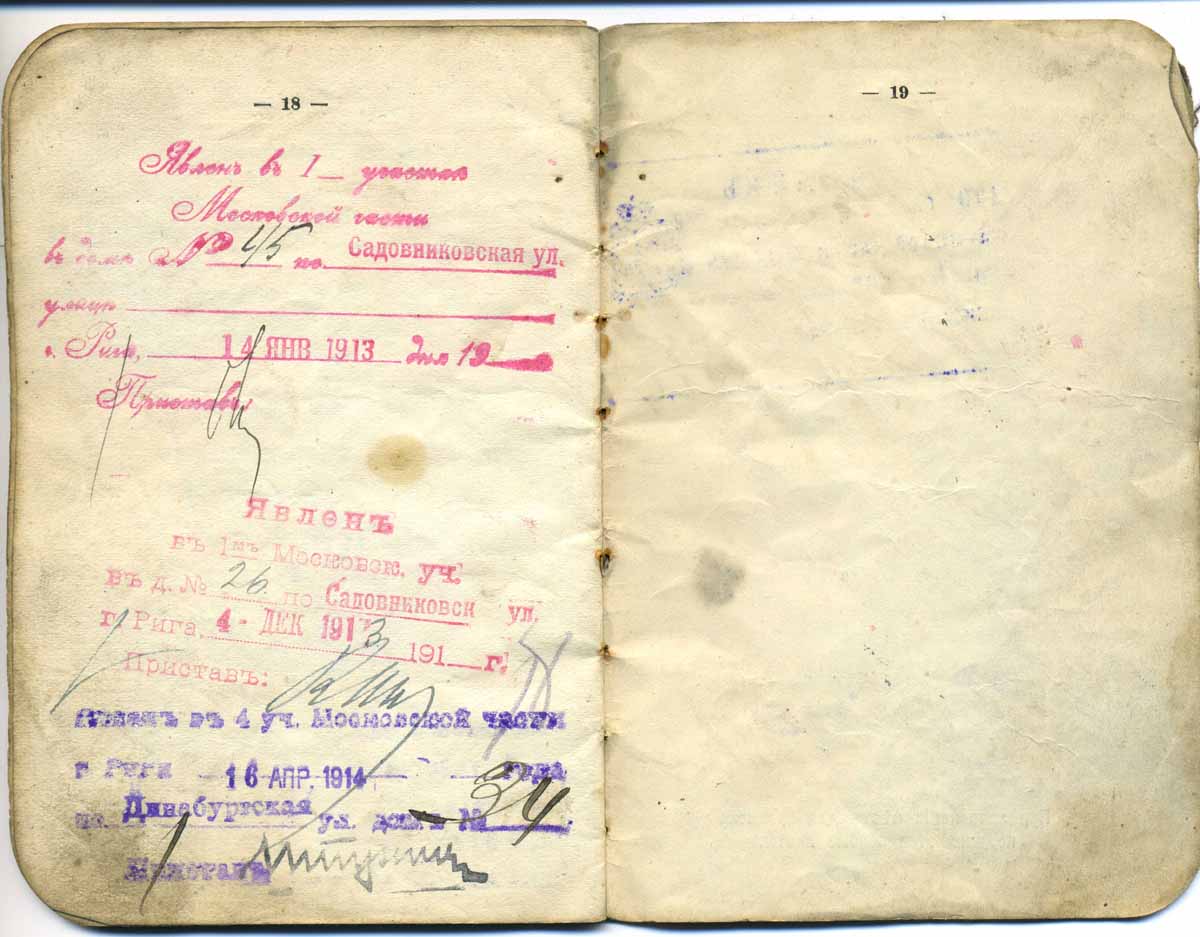 — 18 —
Явленъ въ 1 участкѣ
Московской части
въ домѣ № 45 по Садовниковская ул.
улицѣ
г. Рига, 14 ЯНВ 1913 дня 19
Приставъ
Явленъ
въ 1мъ Московск. уч.
въ д. № 26 по Садовниковск ул.
г. Рига, 4 - ДЕК 1913 191 г.
Приставъ:
Явленъ въ 4 уч. Московской части
г Риги 16 АПР. 1914 года
по Динабургская ул. домъ № 34
Приставъ
— 19 —